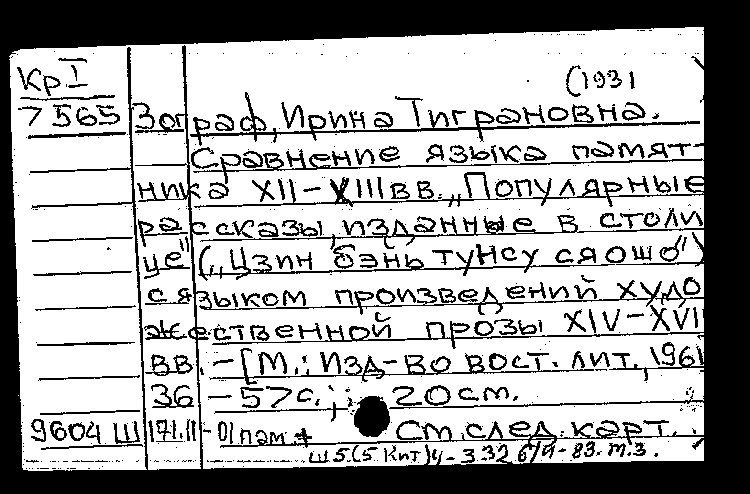 Кр I
(1931
7565 Зограф, Ирина Тиграновна.
Сравнение языка памят-
ника XII-XIII вв. „Популярные
рассказы, изданные в столи
це" („Цзин бэнь тунсу сяошо")
с языком произведений худо
жественной прозы XIV-XVII
вв. - [М.: Изд-во вост. лит., 1961
36 - 57с.; 20см.
9604 Ш 171.11 - 01 пам + См. след. карт.
Ш5(5Кит)4-332